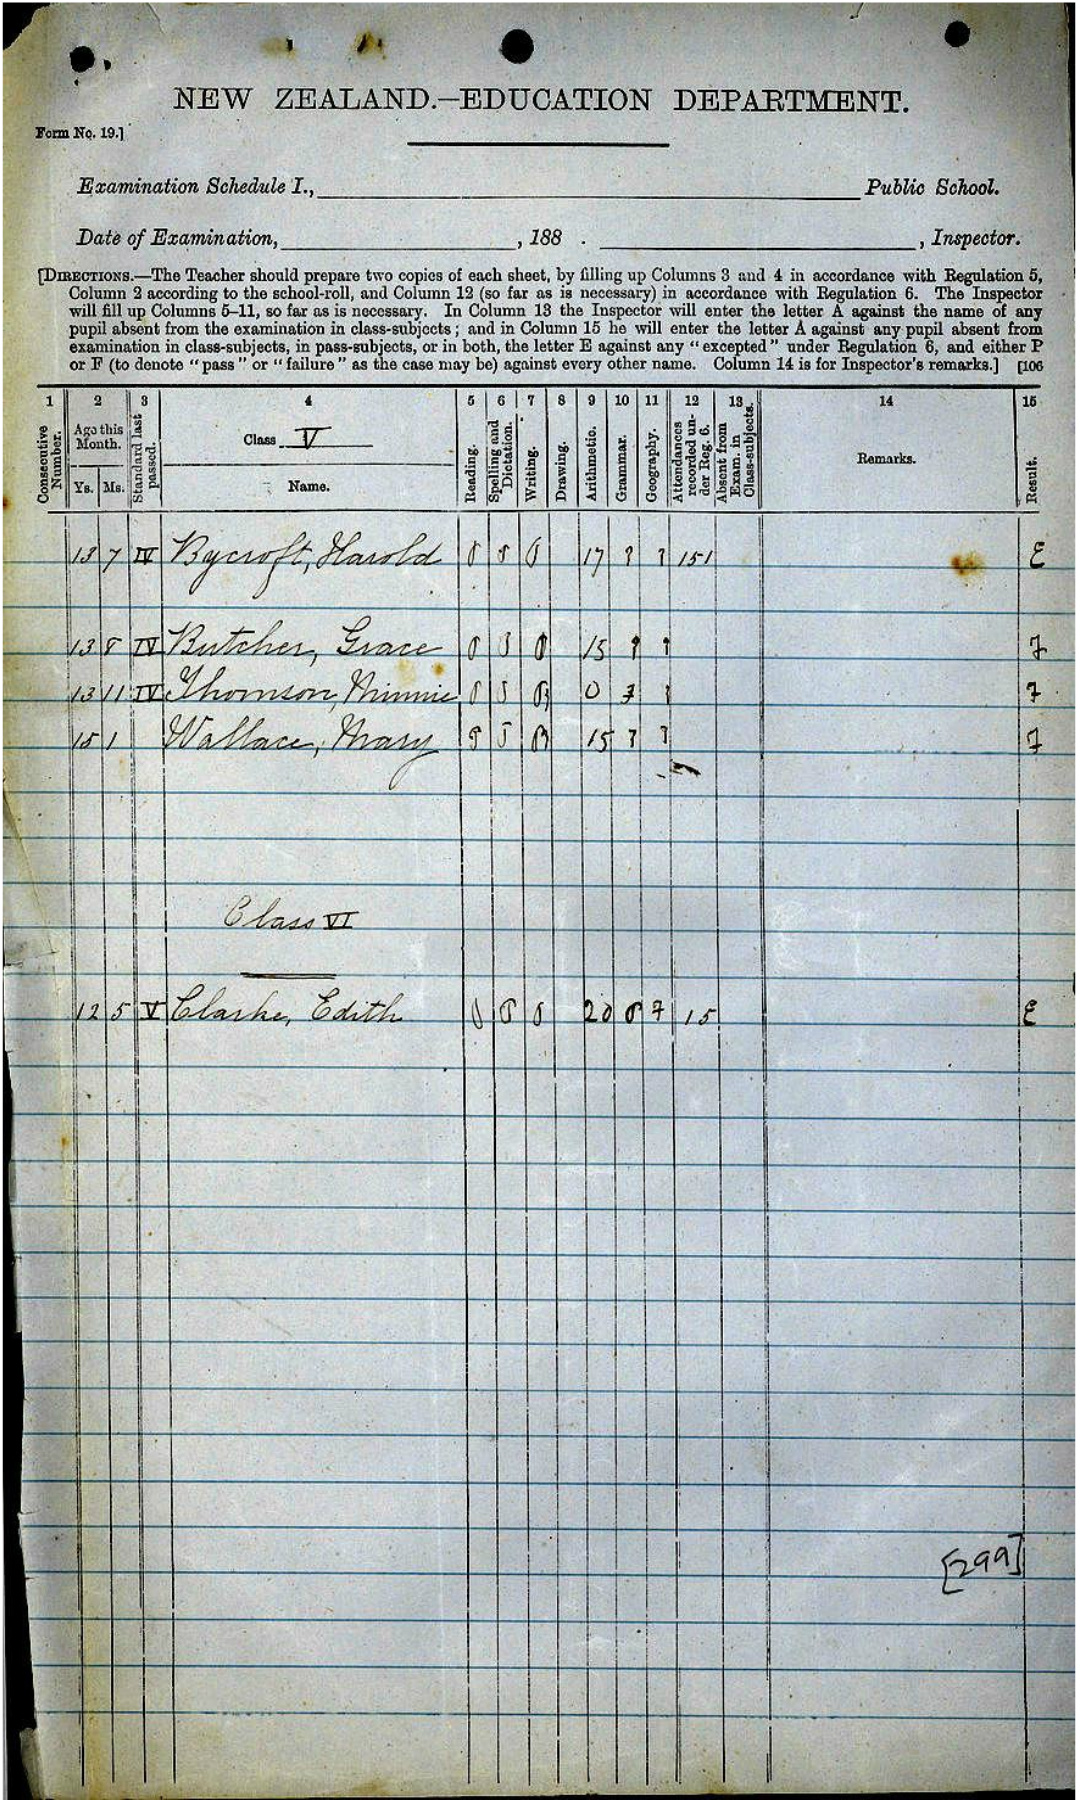 NEW ZEALAND.—EDUCATION DEPARTMENT.
Form No. 19.]
Examination Schedule I., Public School.
Date of Examination, , 188 . , Inspector.
[DIRECTIONS.—The Teacher should prepare two copies of each sheet, by filling up Columns 3 and 4 in accordance with Regulation 5,
Column 2 according to the school-roll, and Column 12 (so far as is necessary) in accordance with Regulation 6. The Inspector
will fill up Columns 5–11, so far as is necessary. In Column 13 the Inspector will enter the letter A against the name of any
pupil absent from the examination in class-subjects; and in Column 15 he will enter the letter A against any pupil absent from
examination in class-subjects, in pass-subjects, or in both, the letter E against any "excepted" under Regulation 6, and either P
or F (to denote "pass" or "failure" as the case may be) against every other name. Column 14 is for Inspector's remarks.] [106
1 2 3 4 5 6 7 8 9 10 11 12 13 14 15
Consecutive Number.
Age this Month.
Ys. Ms.
Standard last passed.
Class V
Name.
Reading.
Spelling and Dictation.
Writing.
Drawing.
Arithmetic.
Grammar.
Geography.
Attendances recorded under Reg. 6.
Absent from Exam. in Class-subjects.
Remarks.
Result.
13 7 IV Bycroft, Harold 17 151 E
13 8 IV Butcher, Grace 15 F
13 11 IV Thomson, Minnie 0 F
15 1 Wallace, Mary 15 F
Class VI
12 5 V Clarke, Edith 20 15 E
[299]